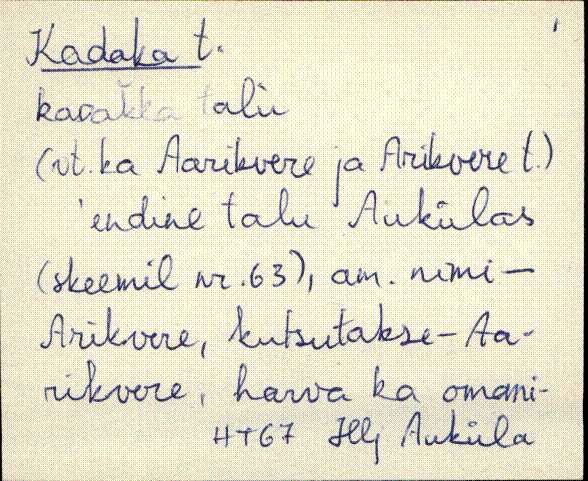 Kadaka t.
kadaǩka talù
(vt. ka Aarikvere ja Arikvere t.)
'endine talu Auküla s
(skeemil nr. 63), am. nimi —
Arikvere, kutsutakse — Aa-
rikvere, harva ka omani-
HT 67 JMj Auküla